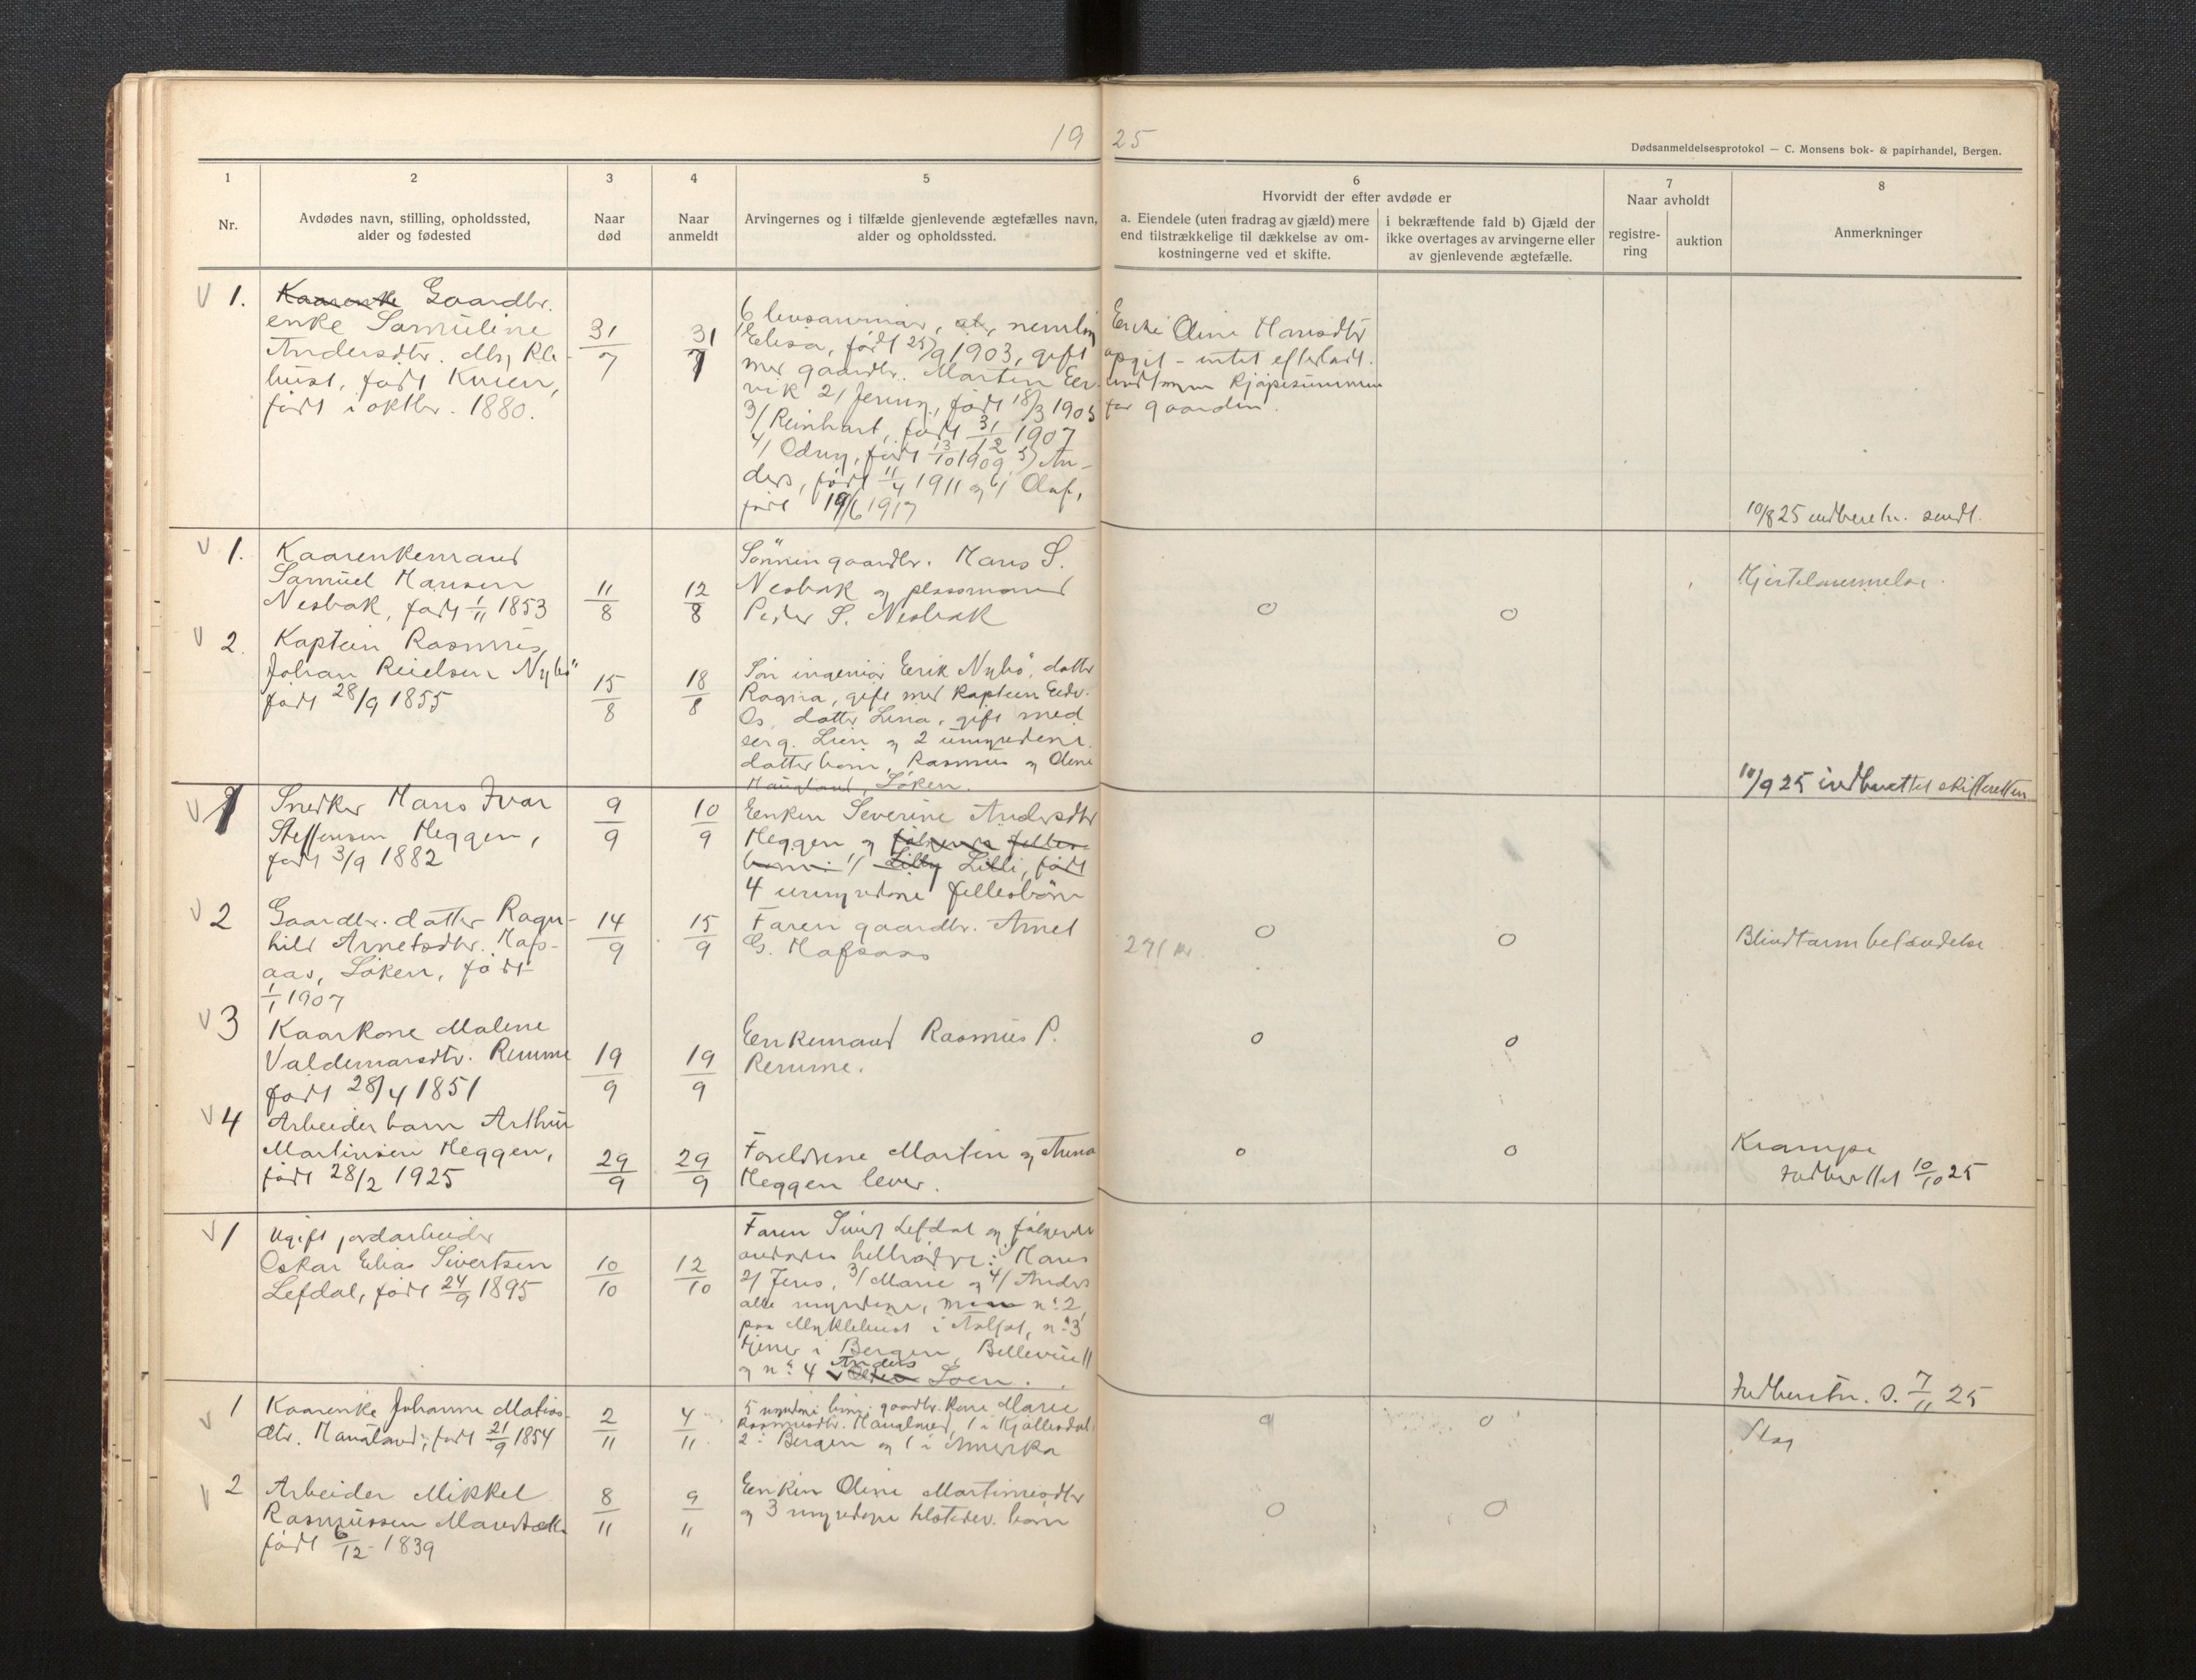 19 25
Dødsanmeldelsesprotokol — C. Monsens bok- & papirhandel, Bergen.
1
Nr.
2
Avdødes navn, stilling, opholdssted,
alder og fødested
3
Naar
død
4
Naar
anmeldt
5
Arvingernes og i tilfælde gjenlevende ægtefælles navn,
alder og opholdssted.
6
Hvorvidt der efter avdøde er
a. Eiendele (uten fradrag av gjæld) mere
end tilstrækkelige til dækkelse av om-
kostningerne ved et skifte.
i bekræftende fald b) Gjæld der
ikke overtages av arvingerne eller
av gjenlevende ægtefælle.
7
Naar avholdt
registre-
ring
auktion
8
Anmerkninger
V 1. Kaarenke Gaardbr.
enke Samuline
Andersdtr. Mykle-
bust, født
født i oktbr. 1880.
31/7
31/7
6 livsarvinger, nemlig
1/ Elisa, født 25/9 1903, gift
med gaardbr. Martin Eer-
vik 2/ Jenny, født 18/3 1905
3/ Reinhart, født 31/12 1907
4/ Odny, født 13/10 1909 5/ An-
ders, født 11/4 1911 og 6/ Olaf,
født 19/6 1917
Enke Oline Hansdtr
opgit - intet efterladt.
undtagen kjøpesummen
for gaarden.
10/8 25 indberetn. sendt.
V 1. Kaarenkemand
Samuel Hansen
Nesbak, født 1/11 1853
11/8
12/8
Sønnen gaardbr. Hans S.
Nesbak og plassmand
Peder S. Nesbak
0
0
Hjertelammelse.
V 2. Kaptein Rasmus
Johan Reielsen Nybö
født 28/9 1855
15/8
18/8
Søn ingeniør Erik Nybö, datter
Ragna, gift med kaptein Edv.
Os, datter Lina, gift med
serg. Lien og 2 umyndige
datterbørn, Rasmus og Oline
Haugland, Løken.
10/9 25 indberettet skifteretten
V 1 Snedker Hans Ivar
Steffensen Heggen,
født 3/9 1882
9/9
10/9
Enken Severine Andersdtr
Heggen og følgende felles-
børn: 1/ Lilly Lilli, født
4 umyndige fellesbørn
V 2 Gaardbr. datter Ragn-
hild Arnetsdtr. Hafs-
aas, Løken, født
1/1 1907
14/9
15/9
Faren gaardbr. Arnet
G. Hafsaas
0
0
Blindtarmbetændelse
V 3 Kaarkone Malene
Valdemarsdtr. Remme
født 28/4 1851
19/9
19/9
Enkemand Rasmus P.
Remme.
0
0
V 4 Arbeider barn Arthur
Martinsen Heggen,
født 28/2 1925
29/9
29/9
Foreldrene Martin og Anna
Heggen lever.
0
0
Krampe
Indberettet 10/10 25
V 1 Ugift jordarbeider
Oskar Elias Sivertsen
Lefdal, født 24/9 1895
10/10
12/10
Faren Sivert Lefdal og følgende
avdødes helsødsk: 1/ Hans
2/ Jens, 3/ Marie og 4/ Anders
alle myndige, men nº 2
paa Myklebust i Aalfot, nº 3
tjener i Bergen, Bellevue 11
og nº 4 Anders Loen.
Indberetn. s. 7/11 25
V 1 Kaarenke Johanne Matias-
dtr. Haugland, født 21/9 1854
2/11
4/11
5 myndige børn: gaardbr. kone Marie
Rasmusdtr. Haugland, 1 i Kjøllesdal
2 i Bergen og 1 i Amerika
0
0
Slag
V 2 Arbeider Mikkel
Rasmussen Maurstad
født 6/12 1839
8/11
9/11
Enken Oline Martinusdtr
og 3 myndige tilstedev. børn
0
0